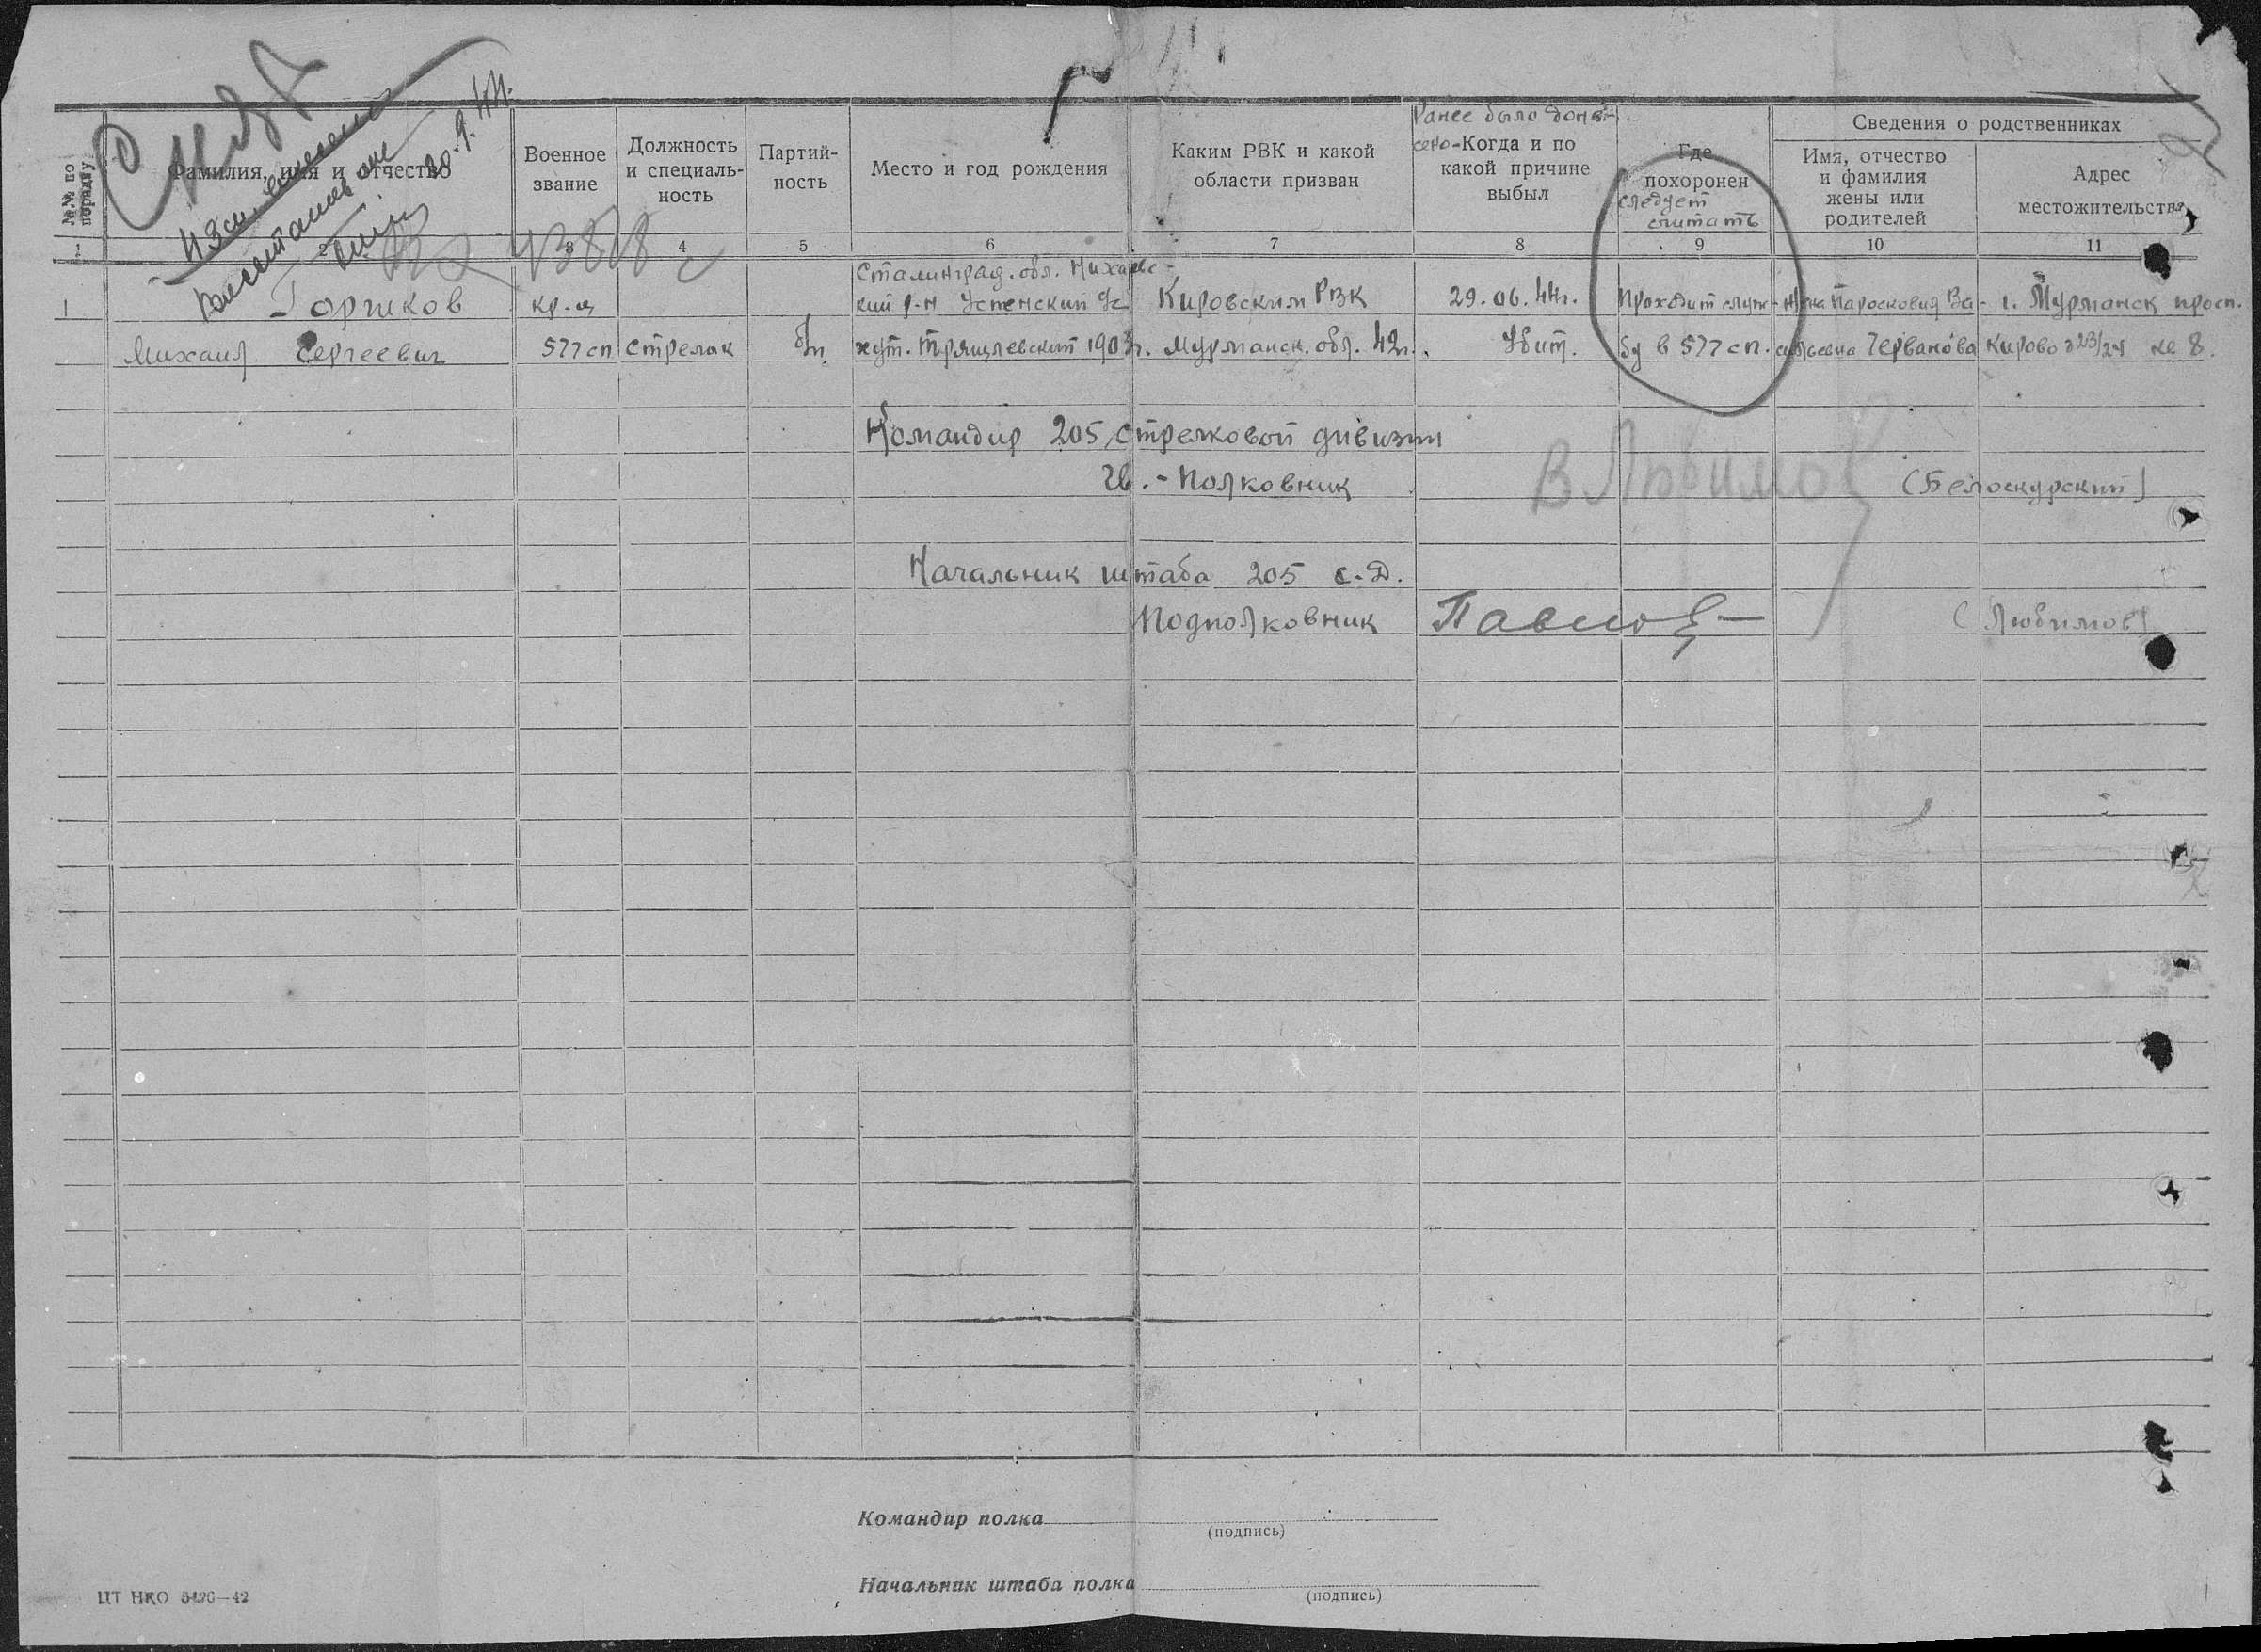 Ранее было доне-
сено - Когда и по
какой причине
выбыл
№№ по
порядку
Фамилия, имя и отчество
Военное
звание
Должность
и специаль-
ность
Партий-
ность
Место и год рождения
Каким РВК и какой
области призван
Где
похоронен
следует
считать
Сведения о родственниках
Имя, отчество
и фамилия
жены или
родителей
Адрес
местожительства
20.9.44.
1 2 3 4 5 6 7 8 9 10 11
43808
1
Горшков
Михаил Сергеевич
кр-ц
577 сп
стрелок
б/п
Сталинград. обл.
кий р-н Успенский
хут. 1903г.
Кировским РВК
Мурманск. обл. 42г.
29.06.44г.
Убит.
Проходит служ-
бу в 577 сп.
жена Парасковия Ва-
сильевна
г. Мурманск просп.
Кирова д 23/24 кв 8.
Командир 205 стрелковой дивизии
Гв. - Полковник (Белоскурский)
В Любимов
Начальник штаба 205 с.д.
Подполковник Павлов (Любимов)
Командир полка
(подпись)
Начальник штаба полка
(подпись)
ЦТ НКО 5426—42